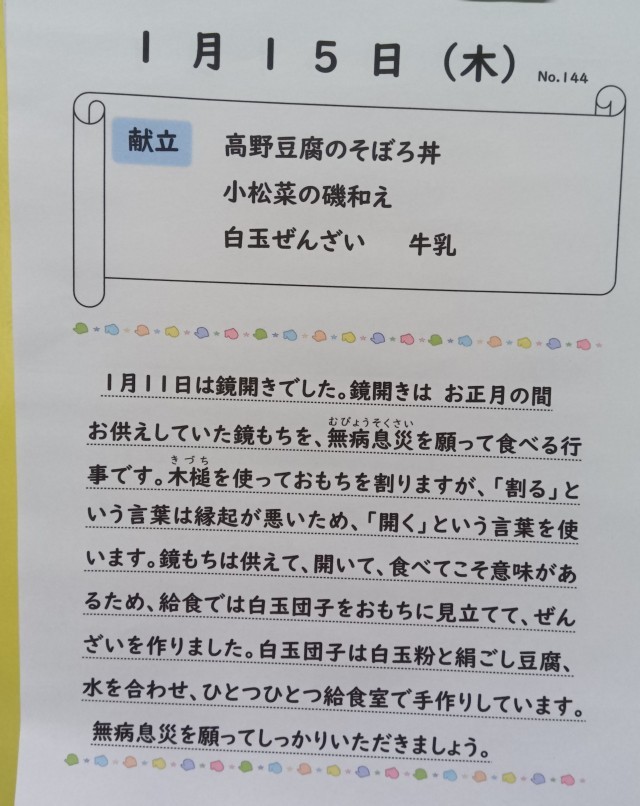 1月15日(木) No.144
献立
高野豆腐のそぼろ丼
小松菜の磯和え
白玉ぜんざい 牛乳
1月11日は鏡開きでした。鏡開きは お正月の間
むびょうそくさい
お供えしていた鏡もちを、無病息災を願って食べる行
きづち
事です。木槌を使っておもちを割りますが、「割る」と
いう言葉は縁起が悪いため、「開く」という言葉を使
います。鏡もちは供えて、開いて、食べてこそ意味があ
るため、給食では白玉団子をおもちに見立てて、ぜん
ざいを作りました。白玉団子は白玉粉と絹ごし豆腐、
水を合わせ、ひとつひとつ給食室で手作りしています。
無病息災を願ってしっかりいただきましょう。